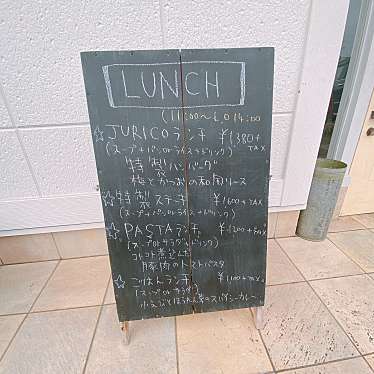 LUNCH
(11:00〜L.O 14:00
☆JURICOランチ ¥1380+TAX
(スープ+パンorライス+ドリンク)
特製ハンバーグ
梅とかつおの和風ソース
☆特製ステーキ ¥1600+TAX
(スープ+パンorライス+ドリンク)
☆PASTAランチ ¥1200+TAX
(スープorサラダ+ドリンク)
コトコト煮込んだ
豚肉のトマトパスタ
☆ごはんランチ ¥1100+TAX
(スープorサラダ)
小えびとほうれん草のスパイシーカレー